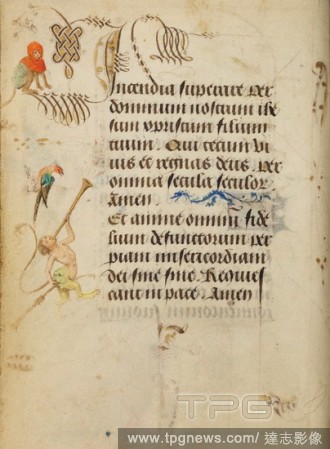 Incendia superare per
dominum nostrum ihe
sum xpristum filium
tuum. Qui tecum vi
uis et regnas deus. per
omnia secula seculor
Amen
Et anime omnium fide
lium defunctorum per
piam misericordiam
dei sine fine. Requies
cant in pace. Amen
TPG
www.tpgnews.com/ 達志影像